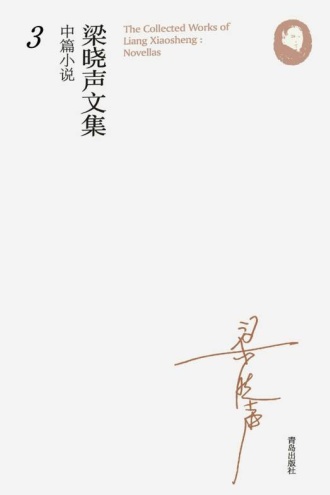 3
中篇小说
梁晓声文集
The Collected Works of
Liang Xiaosheng :
Novellas
梁晓声
青岛出版社